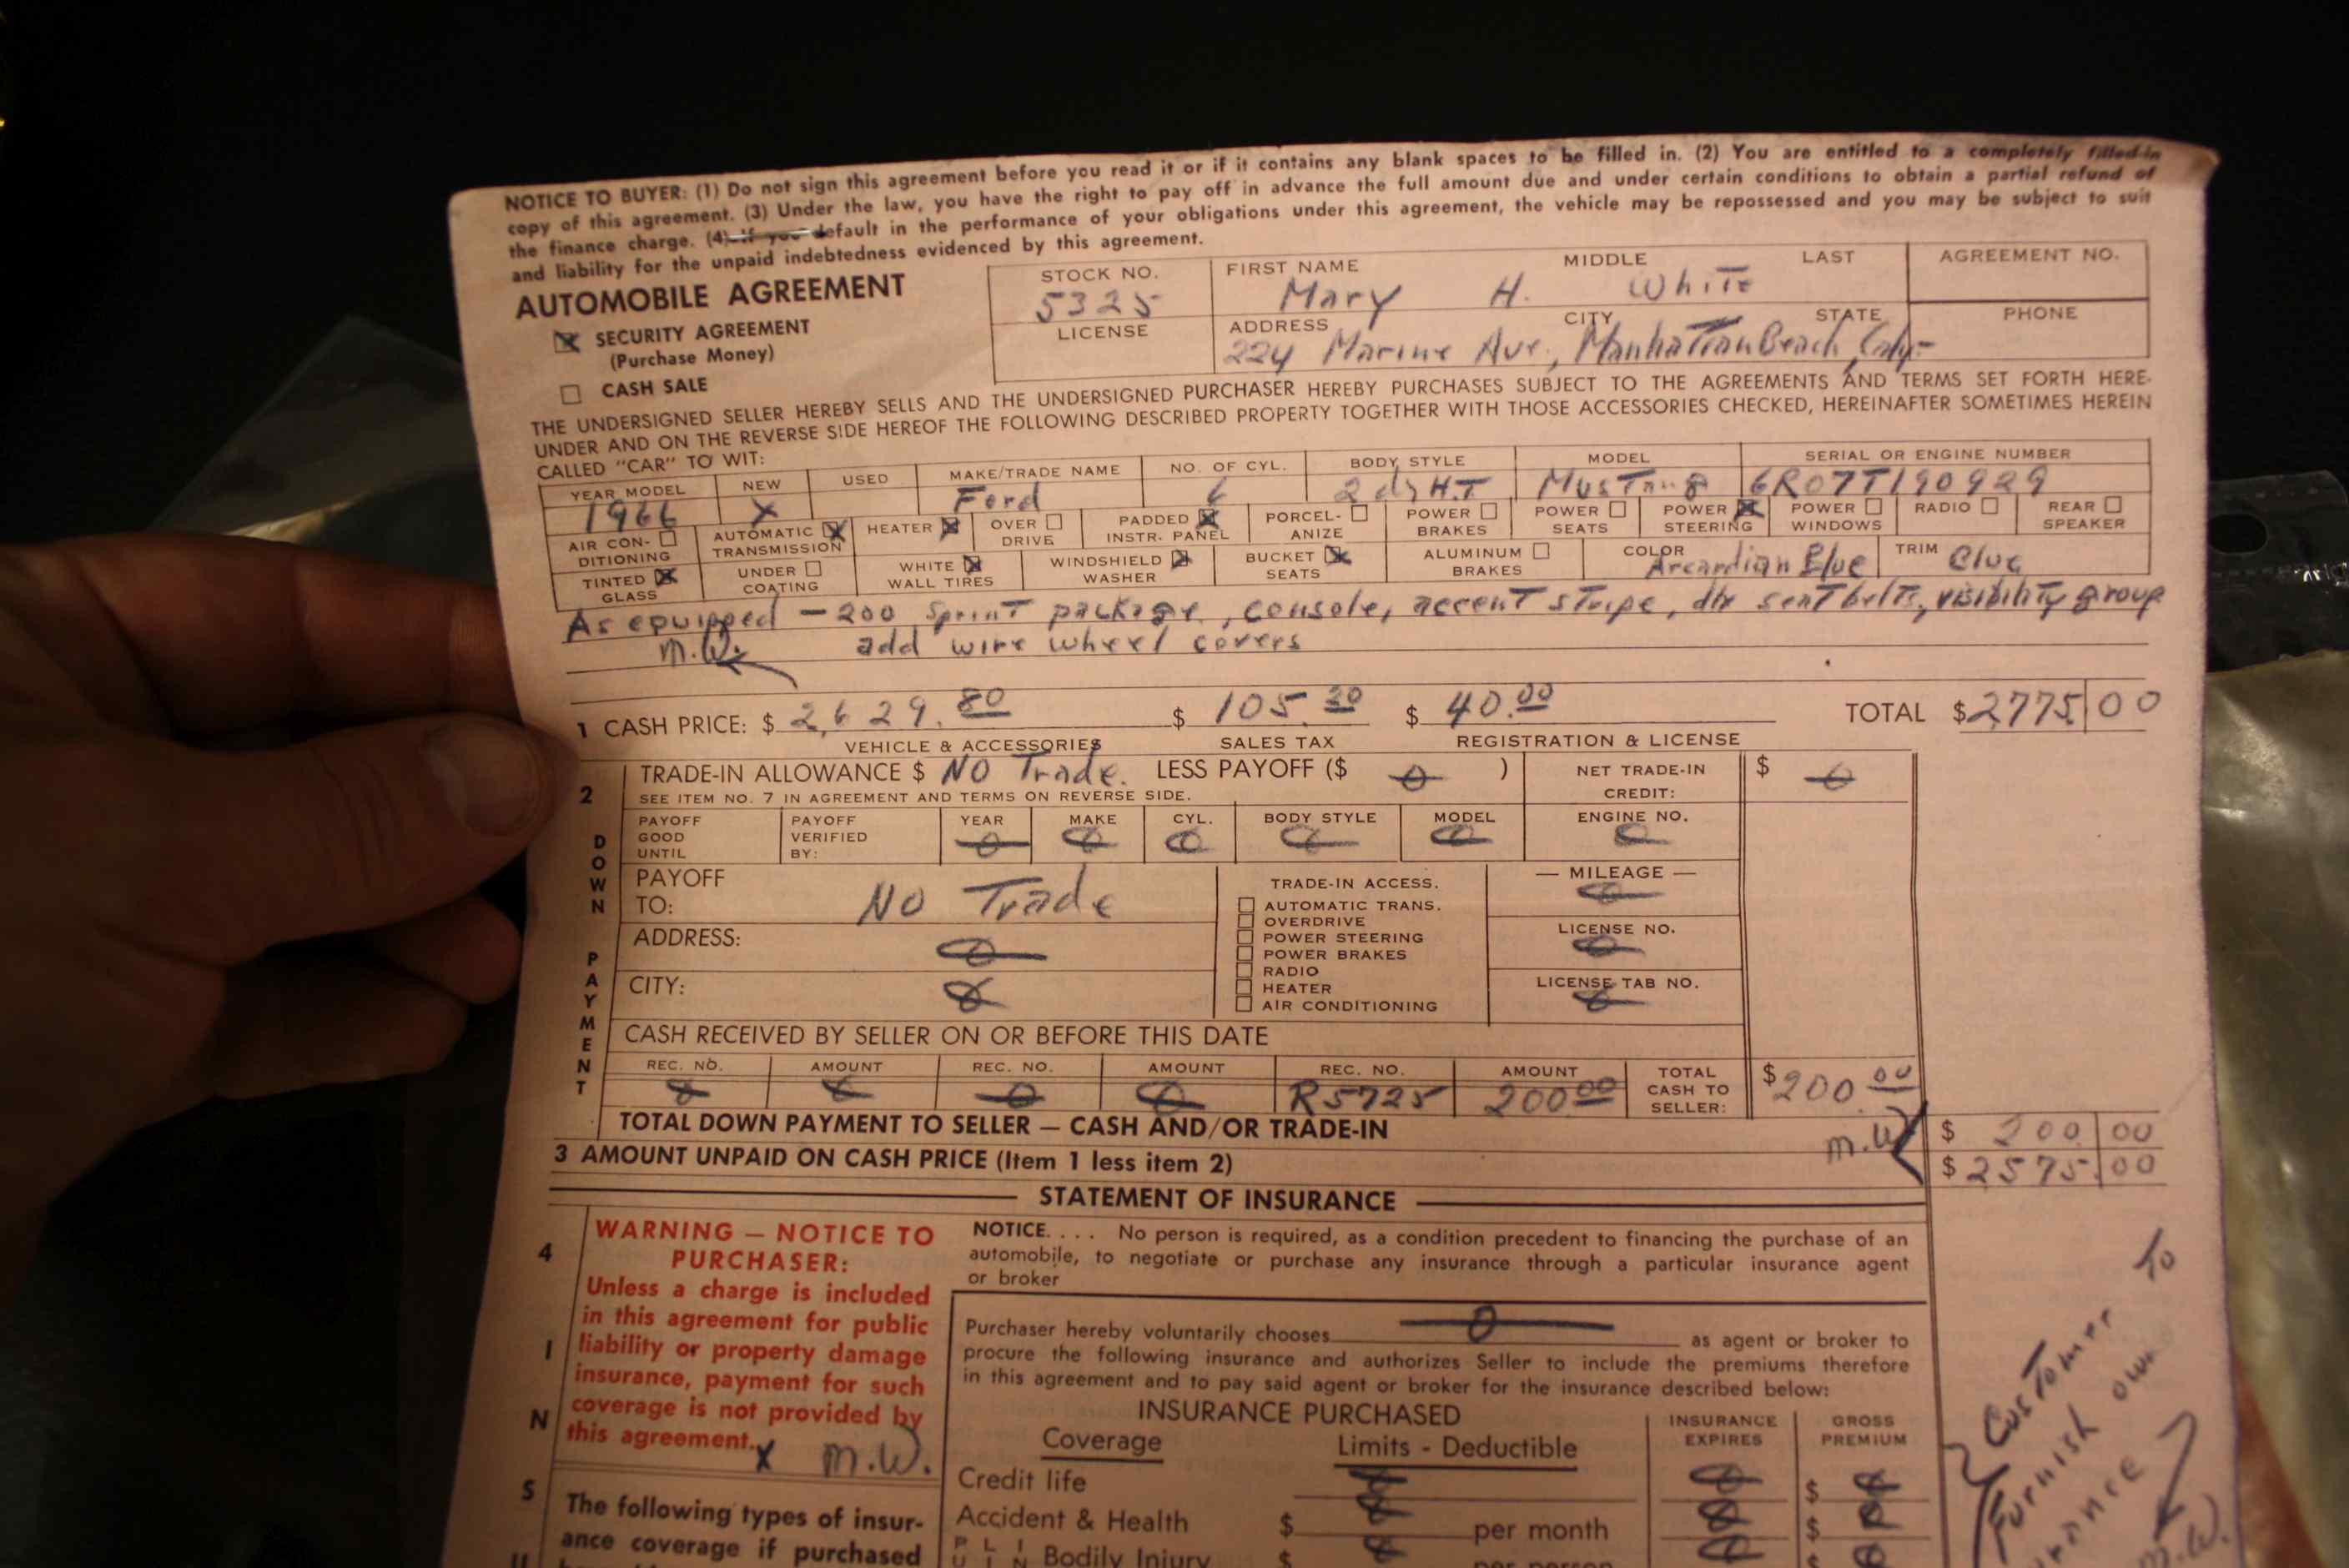 NOTICE TO BUYER: (1) Do not sign this agreement before you read it or if it contains any blank spaces to be filled in. (2) You are entitled to a completely filled-in
copy of this agreement. (3) Under the law, you have the right to pay off in advance the full amount due and under certain conditions to obtain a partial refund of
the finance charge. (4) If you default in the performance of your obligations under this agreement, the vehicle may be repossessed and you may be subject to suit
and liability for the unpaid indebtedness evidenced by this agreement.
AUTOMOBILE AGREEMENT
SECURITY AGREEMENT
(Purchase Money)
CASH SALE
STOCK NO. FIRST NAME MIDDLE LAST AGREEMENT NO.
5325 Mary H. White
LICENSE ADDRESS CITY STATE PHONE
224 Marine Ave., Manhattan Beach, Calif
THE UNDERSIGNED SELLER HEREBY SELLS AND THE UNDERSIGNED PURCHASER HEREBY PURCHASES SUBJECT TO THE AGREEMENTS AND TERMS SET FORTH HERE-
UNDER AND ON THE REVERSE SIDE HEREOF THE FOLLOWING DESCRIBED PROPERTY TOGETHER WITH THOSE ACCESSORIES CHECKED, HEREINAFTER SOMETIMES HEREIN
CALLED "CAR" TO WIT:
YEAR MODEL NEW USED MAKE/TRADE NAME NO. OF CYL. BODY STYLE MODEL SERIAL OR ENGINE NUMBER
1966 X Ford 6 2 dr H.T Mustang 6R07T190929
AIR CON-DITIONING AUTOMATIC TRANSMISSION HEATER OVER DRIVE PADDED INSTR. PANEL PORCEL-ANIZE POWER BRAKES POWER SEATS POWER STEERING POWER WINDOWS RADIO REAR SPEAKER
TINTED GLASS UNDER COATING WHITE WALL TIRES WINDSHIELD WASHER BUCKET SEATS ALUMINUM BRAKES COLOR Arcardian Blue TRIM Blue
As equipped - 200 Sprint package, console, accent stripe, dlx seat belts, visibility group
M.W. add wire wheel covers
1 CASH PRICE: $ 2,629.80 $ 105.20 $ 40.00 TOTAL $2775.00
VEHICLE & ACCESSORIES SALES TAX REGISTRATION & LICENSE
2 DOWN PAYMENT
TRADE-IN ALLOWANCE $ NO Trade. LESS PAYOFF ($ 0 ) NET TRADE-IN CREDIT: $ 0
SEE ITEM NO. 7 IN AGREEMENT AND TERMS ON REVERSE SIDE.
PAYOFF GOOD UNTIL PAYOFF VERIFIED BY: YEAR MAKE CYL. BODY STYLE MODEL ENGINE NO.
0 0 0 0 0 0
PAYOFF TO: NO Trade
TRADE-IN ACCESS.
AUTOMATIC TRANS.
OVERDRIVE
POWER STEERING
POWER BRAKES
RADIO
HEATER
AIR CONDITIONING
— MILEAGE —
0
ADDRESS: 0
LICENSE NO.
0
CITY: 0
LICENSE TAB NO.
0
CASH RECEIVED BY SELLER ON OR BEFORE THIS DATE
REC. NO. AMOUNT REC. NO. AMOUNT REC. NO. AMOUNT TOTAL CASH TO SELLER:
0 0 0 0 R5725 200.00 $200.00
TOTAL DOWN PAYMENT TO SELLER — CASH AND/OR TRADE-IN M.W. $ 200 00
3 AMOUNT UNPAID ON CASH PRICE (Item 1 less item 2) $2575.00
STATEMENT OF INSURANCE
4 I N S U
WARNING — NOTICE TO
PURCHASER:
Unless a charge is included
in this agreement for public
liability or property damage
insurance, payment for such
coverage is not provided by
this agreement.
X M.W.
The following types of insur-
ance coverage if purchased
NOTICE.... No person is required, as a condition precedent to financing the purchase of an
automobile, to negotiate or purchase any insurance through a particular insurance agent
or broker
Purchaser hereby voluntarily chooses 0 as agent or broker to
procure the following insurance and authorizes Seller to include the premiums therefore
in this agreement and to pay said agent or broker for the insurance described below:
INSURANCE PURCHASED
Coverage Limits - Deductible INSURANCE EXPIRES GROSS PREMIUM
Credit life 0 0 $ 0
Accident & Health $ 0 per month 0 $ 0
Bodily Injury $ 0 per person 0 $ 0
Customer To
Furnish own
M.W.